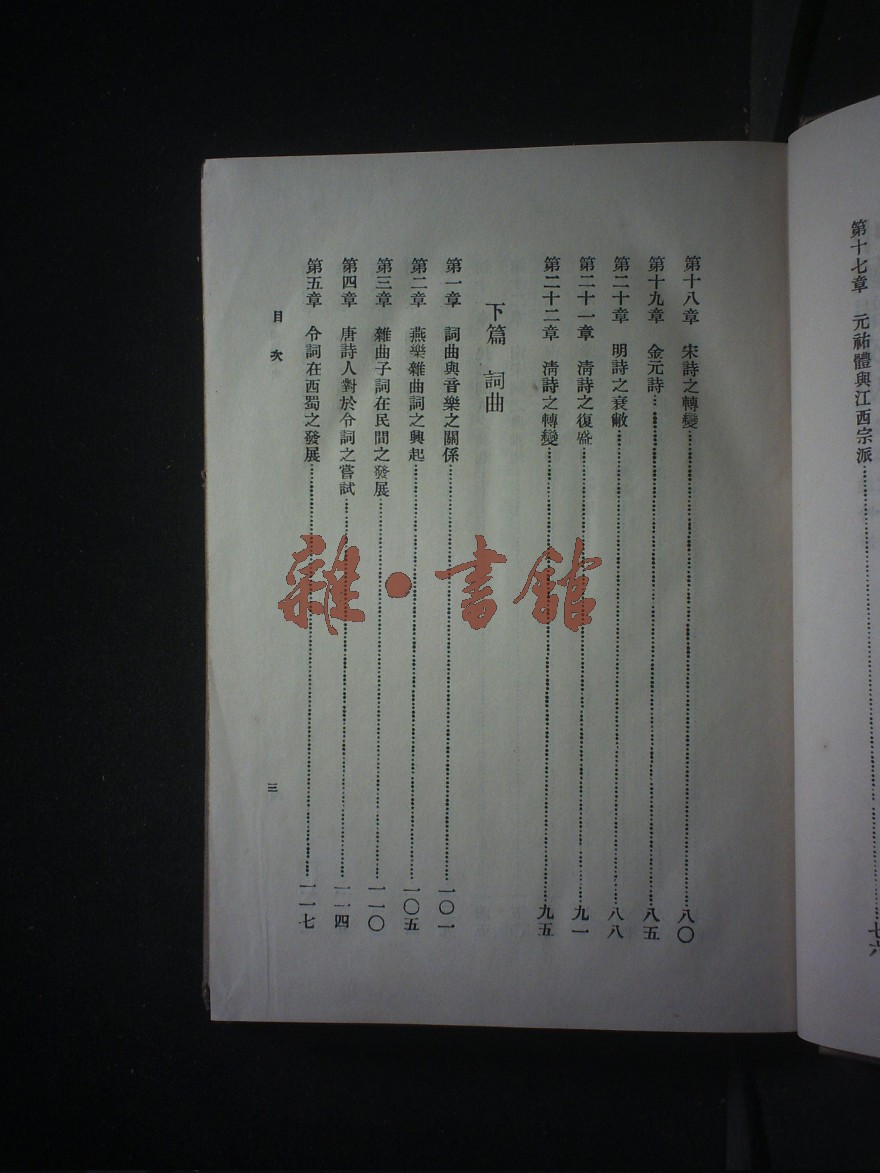 第十七章　元祐體與江西宗派……七六
第十八章　宋詩之轉變……八〇
第十九章　金元詩……八五
第二十章　明詩之衰敝……八八
第二十一章　淸詩之復盛……九一
第二十二章　淸詩之轉變……九五
下篇　詞曲
第一章　詞曲與音樂之關係……一〇一
第二章　燕樂雜曲詞之興起……一〇五
第三章　雜曲子詞在民間之發展……一一〇
第四章　唐詩人對於令詞之嘗試……一一四
第五章　令詞在西蜀之發展……一一七
目次
三
雜·書館